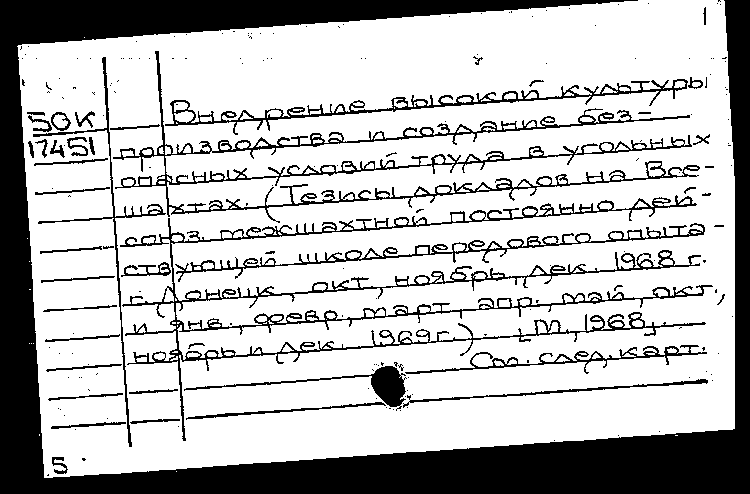 1
Внедрение высокой культуры
50К
17451
производства и создание без-
опасных условий труда в угольных
шахтах. (Тезисы докладов на Все-
союз. межшахтной постоянно дей-
ствующей школе передового опыта -
г. Донецк, окт, ноябрь, дек. 1968 г.
и янв., февр., март, апр., май, окт.,
ноябрь и дек. 1969г.). [М., 1968].
См. след. карт.
5